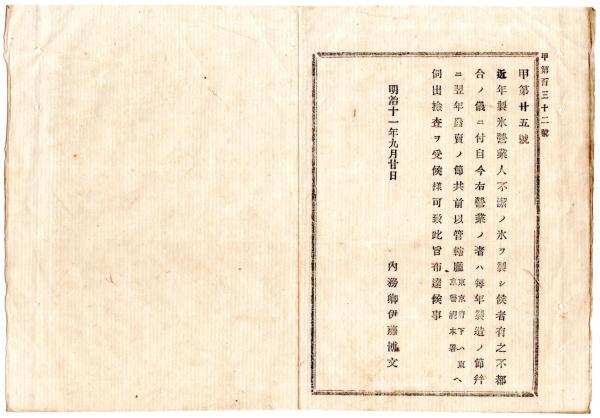 甲第百三十二號
甲第廿五號
近年製氷營業人不潔ノ氷ヲ製シ候者有之不都
合ノ儀ニ付自今右營業ノ者ハ每年製造ノ節幷
ニ翌年發賣ノ節共前以管轄廳東京府下ハ東京警視本署ヘ
伺出撿査ヲ受候樣可致此旨布達候事
明治十一年九月廿日
內務卿伊藤博文